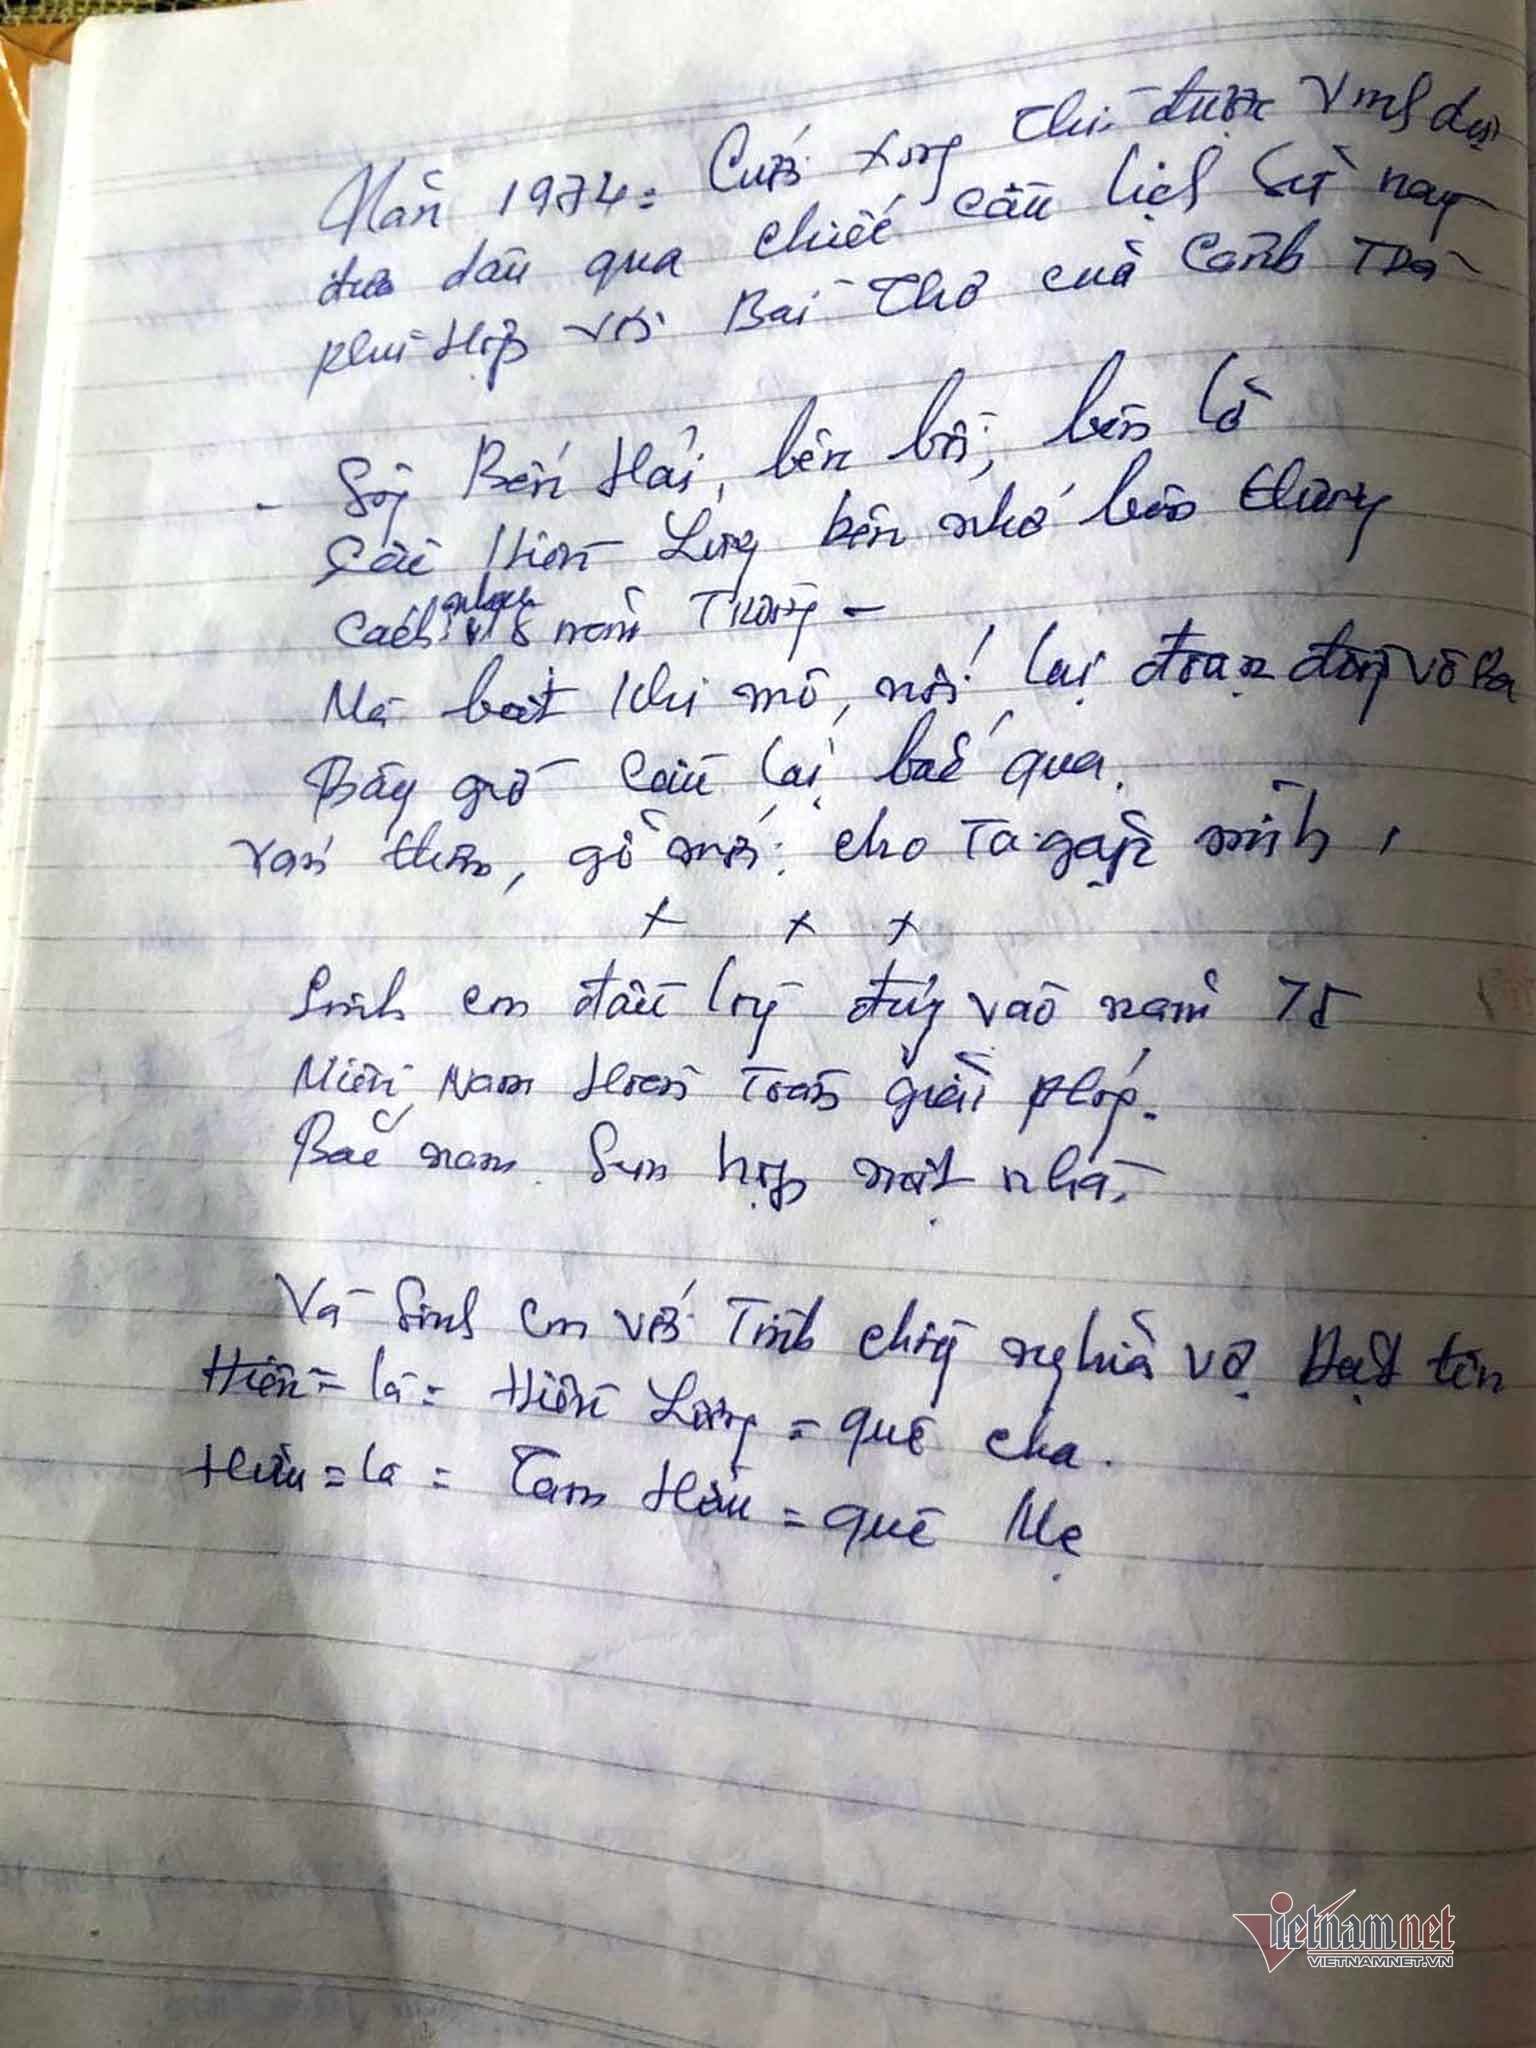 Năm 1974: Cưới xong thì được vinh dự
đưa dâu qua chiếc cầu lịch sử nay
phù Hợp với Bài Thơ của Cảnh Trà
- Sông Bến Hải, bên bồi, bên lở
Cầu Hiền Lương bên nhớ bên thương
Cách nhau 18 năm Trường -
Mà bắt khi mô, nối lại đoạn đường vô ra
Bây giờ cầu lại bắc qua.
Ván thơm, gỗ mới cho Ta gặp mình,
+ + +
Sinh con đầu lòng đúng vào năm 75
Miền Nam Hoàn Toàn giải phóng.
Bắc nam Sum họp một nhà.
Và Sinh con với Tình chồng nghĩa vợ Đặt tên
Hiền = là = Hiền Lương = quê cha.
Hậu = là = Tam Hậu = quê Mẹ
Vietnamnet
VIETNAMNET.VN